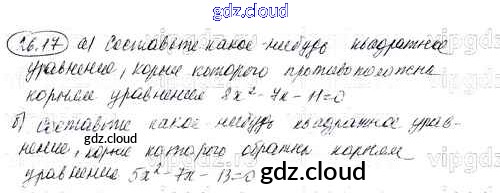 gdz.cloud
26.17 а) Составьте какое-нибудь квадратное
уравнение, корни которого противоположны
корням уравнения 8x² - 7x - 11 = 0
б) Составьте какое-нибудь квадратное урав-
gdz.cloud
нение, корни которого обратны корням
уравнения 5x² - 7x - 13 = 0
gdz.cloud
gdz.cloud